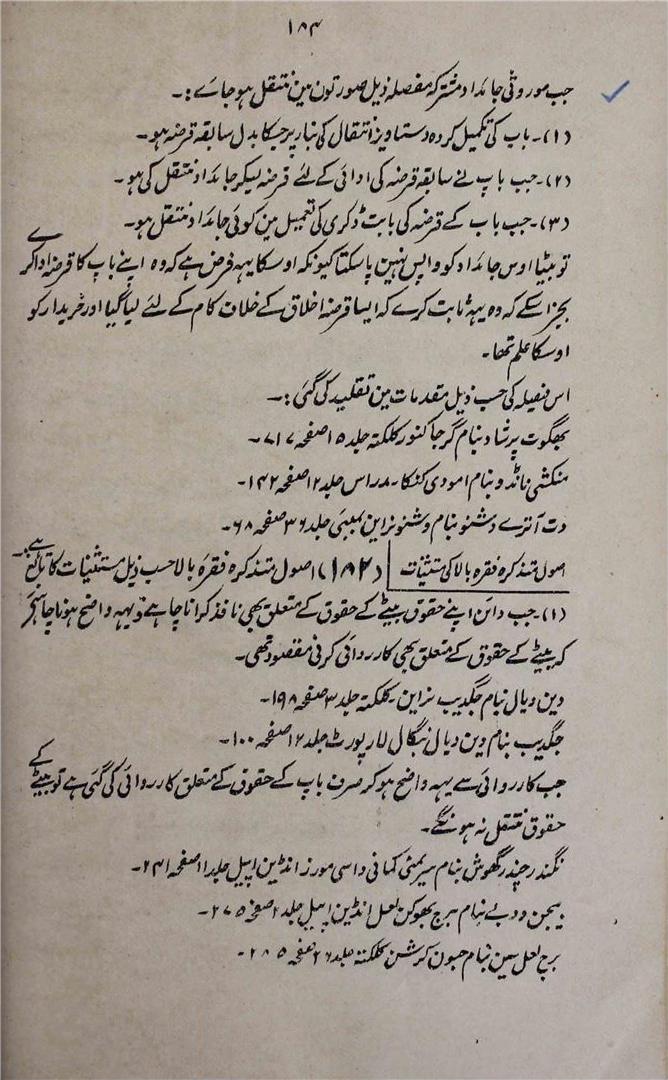 ۱۸۴
جب موروثی جائداد مشترکہ مفصلہ ذیل صورتون مین منتقل ہوجاے :۔
(۱)۔ باپ کی تکمیل کردہ دستاویز انتقال کی بنا پر جسکا بدل سابقہ قرضہ ہو۔
(۲)۔ جب باپ نے سابقہ قرضہ کی ادائی کے لئے قرضہ لیکر جائداد منتقل کی ہو۔
(۳)۔ جب باپ کے قرضہ کی بابت ڈکری کی تعمیل مین کوئی جائداد منتقل ہو۔
تو بیٹا اوس جائداد کو واپس نہین پاسکتا کیونکہ اوسکا یہہ فرض ہے کہ وہ اپنے باپ کا قرضہ ادا کرے
بجز اسکے کہ وہ یہہ ثابت کرے کہ ایسا قرضہ اخلاق کے خلاف کام کے لئے لیا گیا اور خریدار کو
اوسکا علم تھا۔
اس فیصلہ کی حسب ذیل مقدمات مین تقلید کی گئی :۔
بھگوت پرشاد بنام گرجا کنور کلکتہ جلد ۱۵ صفحہ ۷۱۷۔
منکشی نائڈو بنام امودی کنکا۔ مدراس جلد ۱۲ صفحہ ۱۴۲۔
دت آترے وشنو بنام وشنو نراین بمبئی جلد ۳۶ صفحہ ۶۸۔
اصول متذکرہ فقرہ بالا کی مستثنیات (۱۸۲) اصول متذکرہ فقرہ بالا حسب ذیل مستثنیات کا تابع ہے:۔
(۱)۔ جب دائن اپنے حقوق بیٹے کے حقوق کے متعلق بھی نافذ کرانا چاہے تو یہہ واضح ہونا چاہئے
کہ بیٹے کے حقوق کے متعلق بھی کارروائی کرنی مقصود تھی۔
دین دیال بنام جگدیب نراین۔ کلکتہ جلد ۳ صفحہ ۱۹۸۔
جگدیب بنام دین دیال بنگال لا رپورٹ جلد ۱۲ صفحہ ۱۰۰۔
جب کارروائی سے یہہ واضح ہو کہ صرف باپ کے حقوق کے متعلق کارروائی کی گئی ہے تو بیٹے کے
حقوق منتقل نہ ہونگے۔
نگندر چندر گھوش بنام سریمتی کمانی داسی مورز انڈین اپیل جلد ۱۱ صفحہ ۲۴۱۔
بیجن دوبے بنام برج بھوکن لعل انڈین اپیل جلد ۲ صفحہ ۲۷۵۔
برج لعل سین بنام جیون کرشن کلکتہ جلد ۲۶ صفحہ ۲۸۵۔